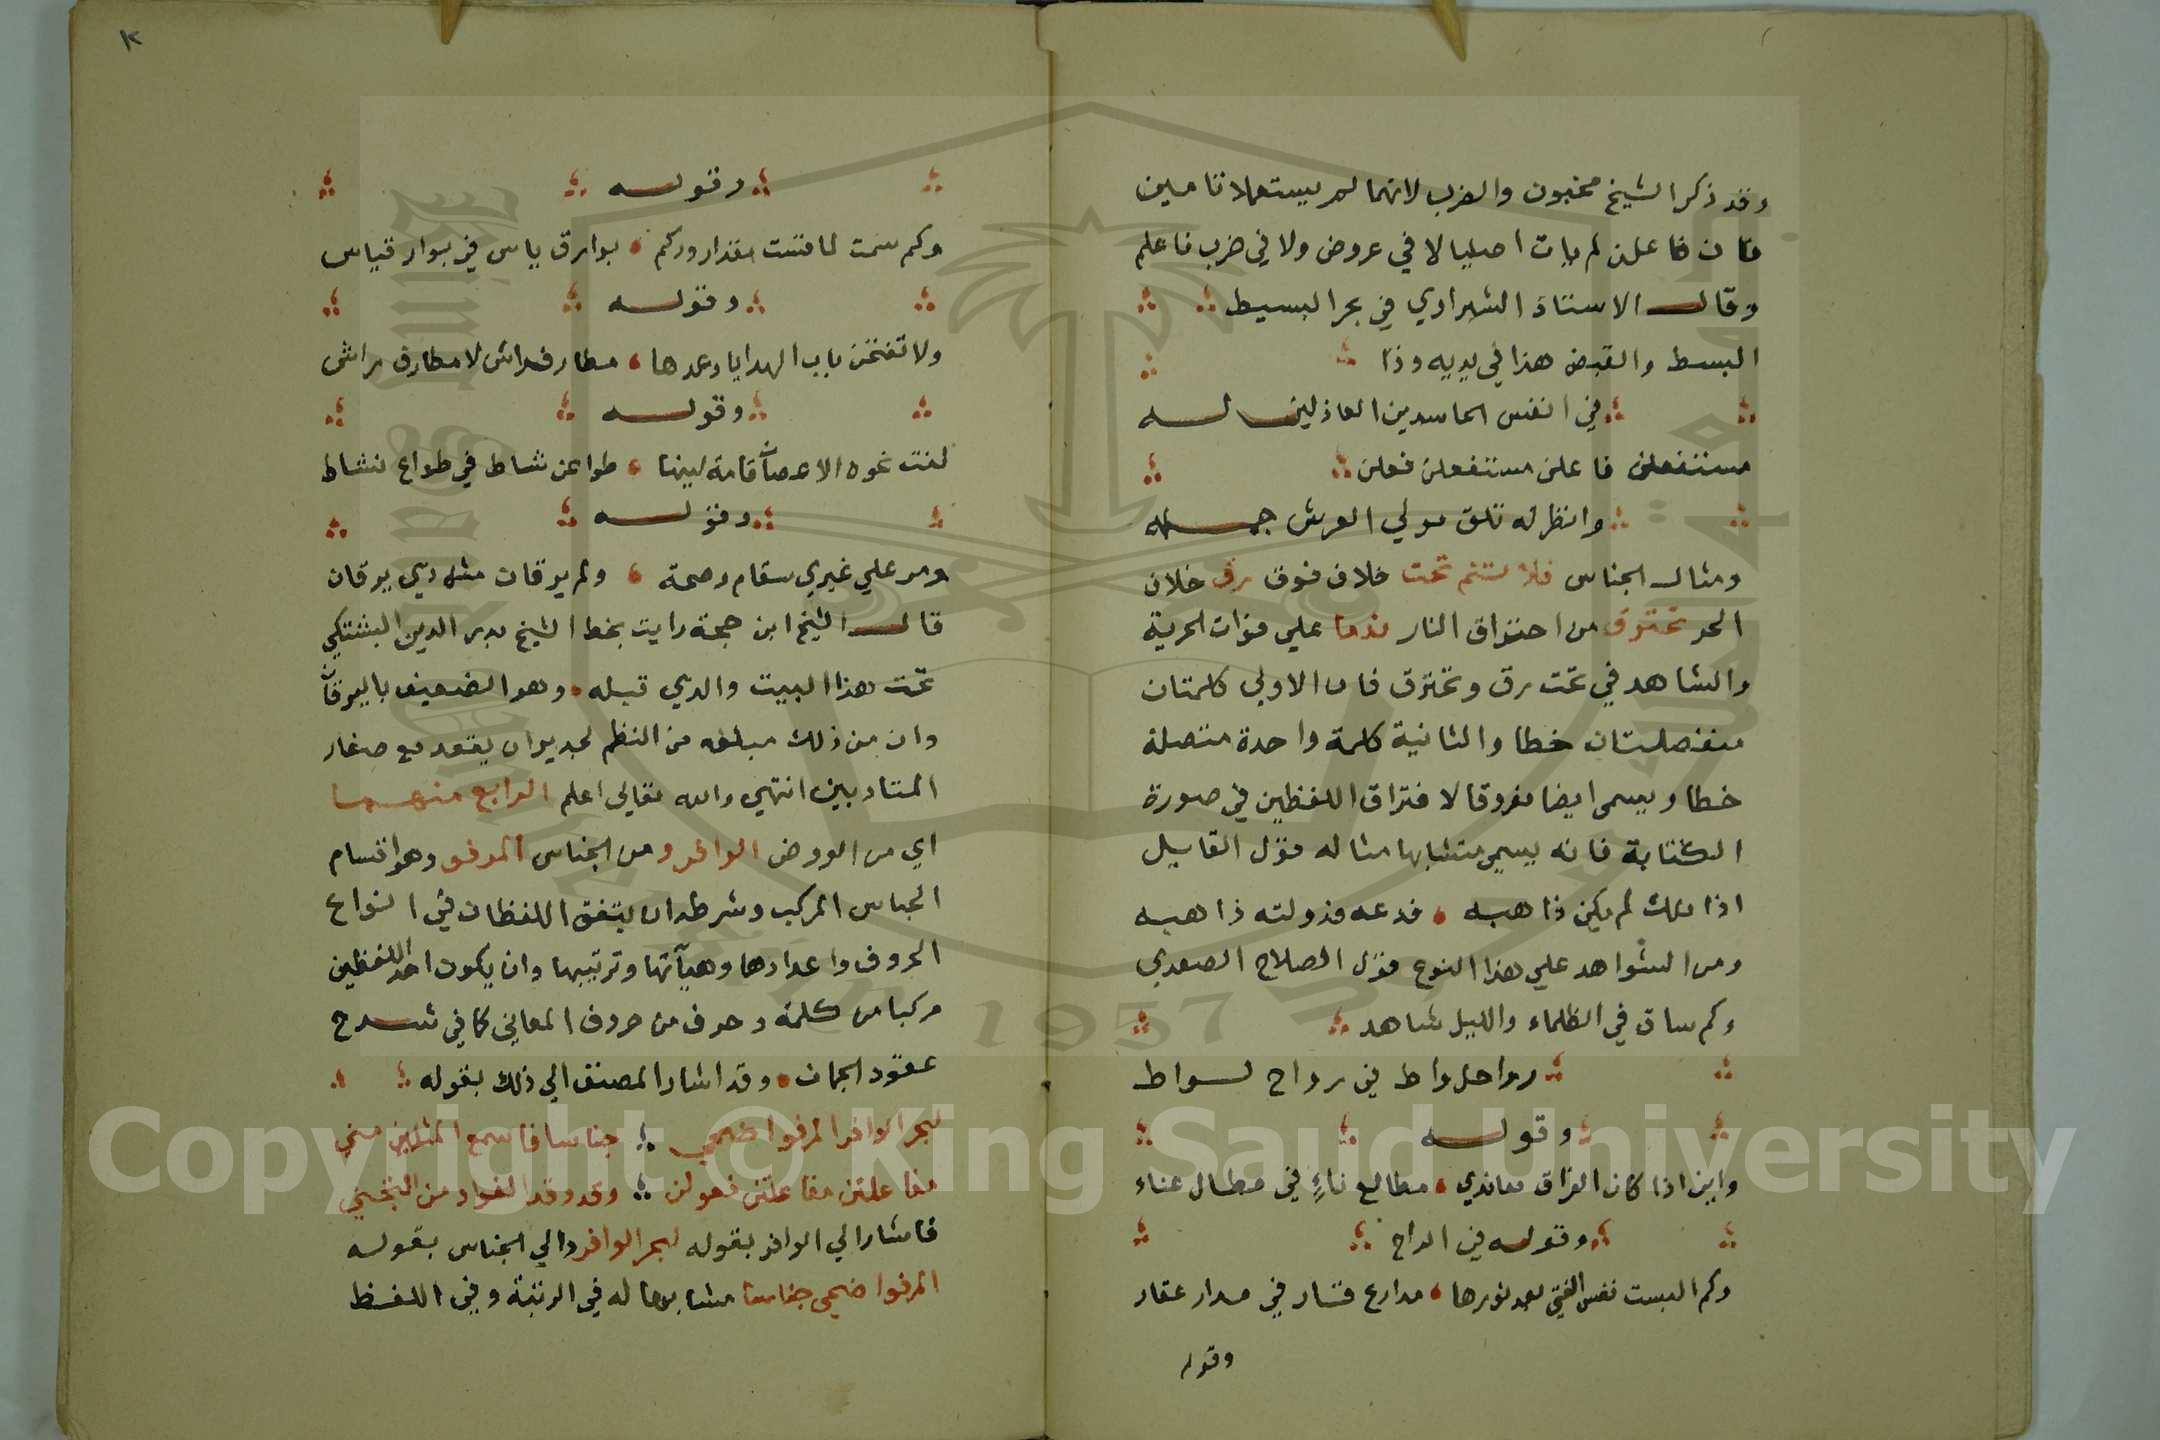 وقد ذكر الشيخ مخبون والضرب لانهما لم يستعملا تامين
فان فاعلن لم يات اصليا لا في عروض ولا في ضرب فاعلم
وقال الاستاذ الشبراوي في بحر البسيط
البسط والقبض هذا في يديه وذا
في انفس الحاسدين العاذلين له
مستفعلن فاعلن مستفعلن فعلن
وانظر له تلق مولي العرش جمله
ومثال الجناس فلا تسم تحت خلاف فوق برق خلان
الحر تحترق من احتراق النار ندما علي فوات الحرية
والشاهد في تحت رق وتحترق فان الاولي كلمتان
منفصلتان خطا والثانية كلمة واحدة متصلة
خطا ويسمى ايضا مفروقا لافتراق اللفظين في صورة
الكتابة فانه يسمي متشابها مثاله قول القايل
اذا ملك لم يكن ذا هبه فدعه فدولته ذاهبه
ومن الشواهد علي هذا النوع قول الصلاح الصفدي
وكم ساق في الظلماء والليل شاهد
رواحل واط في رواح لسواط
وقوله
واين اذا كان الفراق معاندي مطالع ناءٍ في مطال عناء
وقوله في الراح
وكم البست نفس الفتي بعد نورها مدارع قار في مدار عقار
وقوله
وقوله
وكم سمت لما قست مقدار وركم بوارق ياس في بوار قياس
وقوله
ولا تفتحن باب الهدايا وعدها مطارفراش لا مطارق راش
وقوله
طواعن شاط في طواع نشاط
وقوله
ومر علي غيري سقام وصحة ولم يرقان مثل دي يرقان
قال الشيخ ابن حجة رايت بخط الشيخ بدر الدين البشتكي
تحت هذا البيت والدي قبله وهو الضعيف باليرقان
وان من ذلك مبلغه من النظم لجدير ان يقعد مع صغار
المتادبين انتهي والله تعالى اعلم الرابع منهما
اي من العروض الوافر ومن الجناس المرفو وهو اقسام
الجناس المركب وشرطه ان يتفق اللفظان في انواع
الحروف واعدادها وهيآتها وترتيبها وان يكون احد اللفظين
مركبا من كلمة وحرف من حروف المعاني كما في شرح
عقود الجمان وقد اشار المصنف الي ذلك بقوله
لبحر الوافر المرفوا ضحي جناسا فاسمع المثلين مني
مفاعلتن مفاعلتن فعولن وقد وقد الفواد من التجني
فاشار الي الوافر بقوله لبحر الوافر والي الجناس بقوله
المرفوا ضحي جناسا مشابها له في الرتبة وفي اللفظ